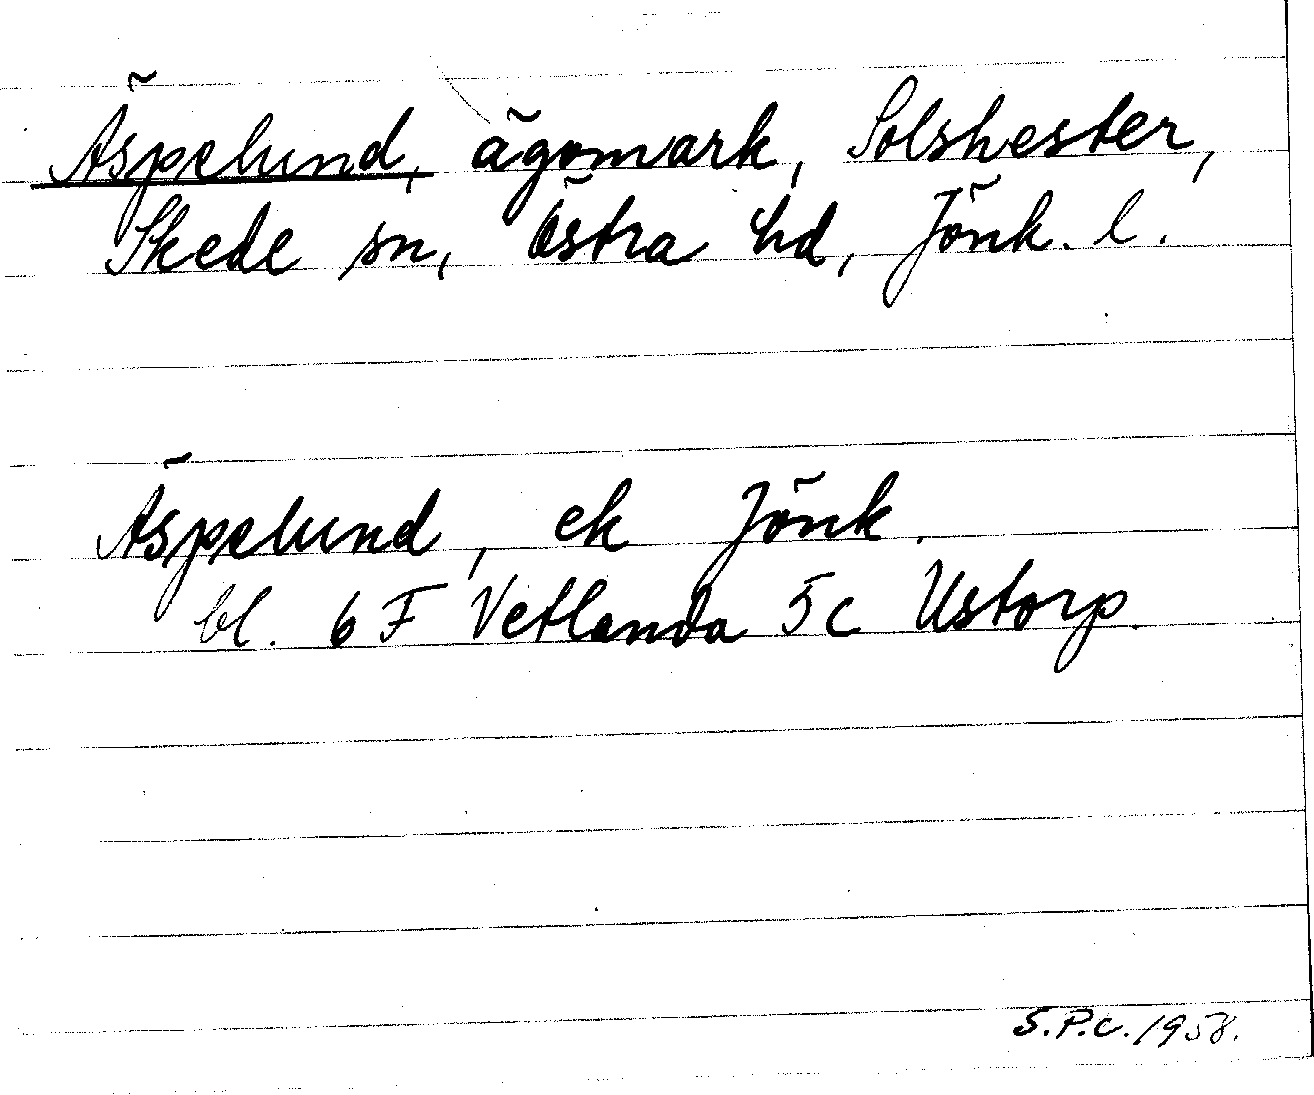 Äspelund, ägomark, Solshester,
Skede sn, Östra hd, Jönk. l.
Äspelund, ek Jönk.
bl. 6 F Vetlanda 5c Ustorp.
S.P.C. 1958.